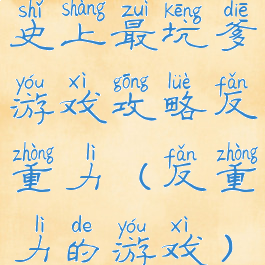 shǐ shàng zuì kēng diē
史上最坑爹
yóu xì gōng lüè fǎn
游戏攻略反
zhòng lì fǎn zhòng
重力(反重
lì de yóu xì
力的游戏)